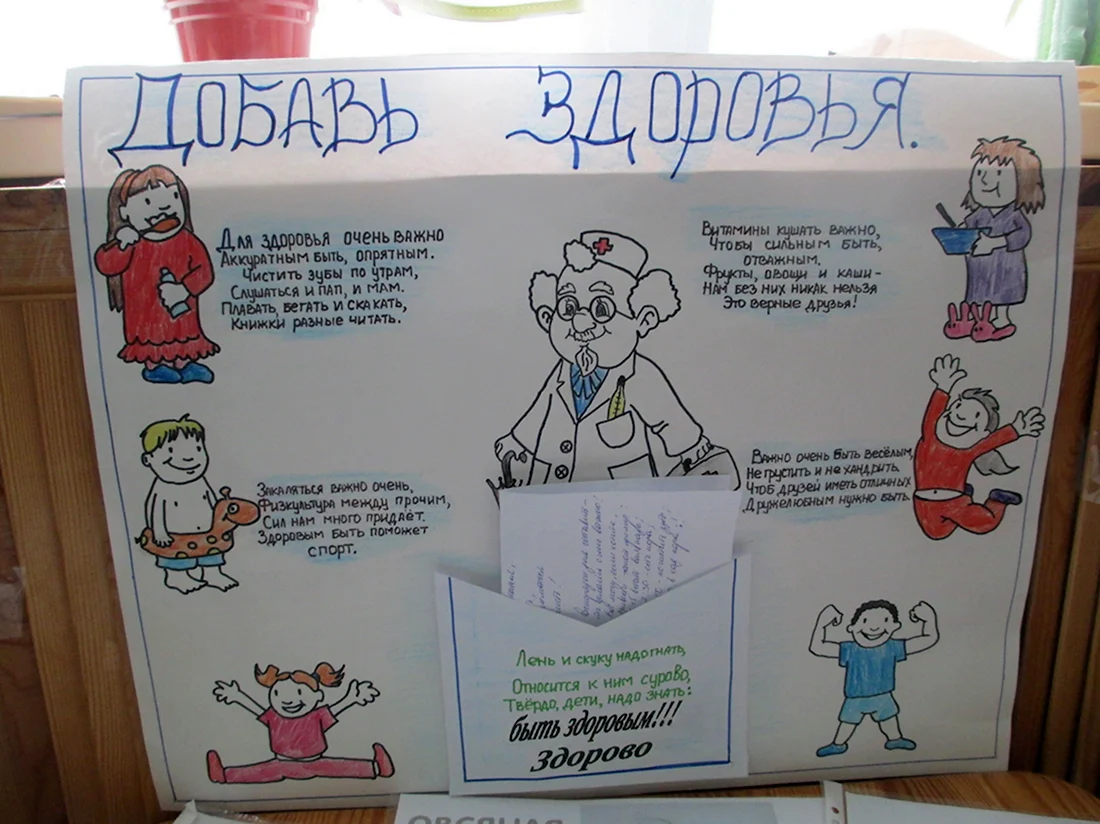 ДОБАВЬ ЗДОРОВЬЯ.
Для здоровья очень важно
Аккуратным быть, опрятным.
Чистить зубы по утрам,
Слушаться и пап, и мам.
Плавать, бегать и скакать,
Книжки разные читать.
Витамины кушать важно,
Чтобы сильным быть,
отважным.
Фрукты, овощи и каши-
Нам без них никак нельзя
Это верные друзья!
Закаляться важно очень,
Физкультура между прочим,
Сил нам много придаёт.
Здоровым быть поможет
спорт.
Важно очень быть весёлым,
Не грустить и не хандрить,
Чтоб друзей иметь отличных
Дружелюбным нужно быть.
Лень и скуку надо гнать,
Относится к ним сурово,
Твёрдо, дети, надо знать:
быть здоровым!!!
Здорово
ОВСЯНАЯ